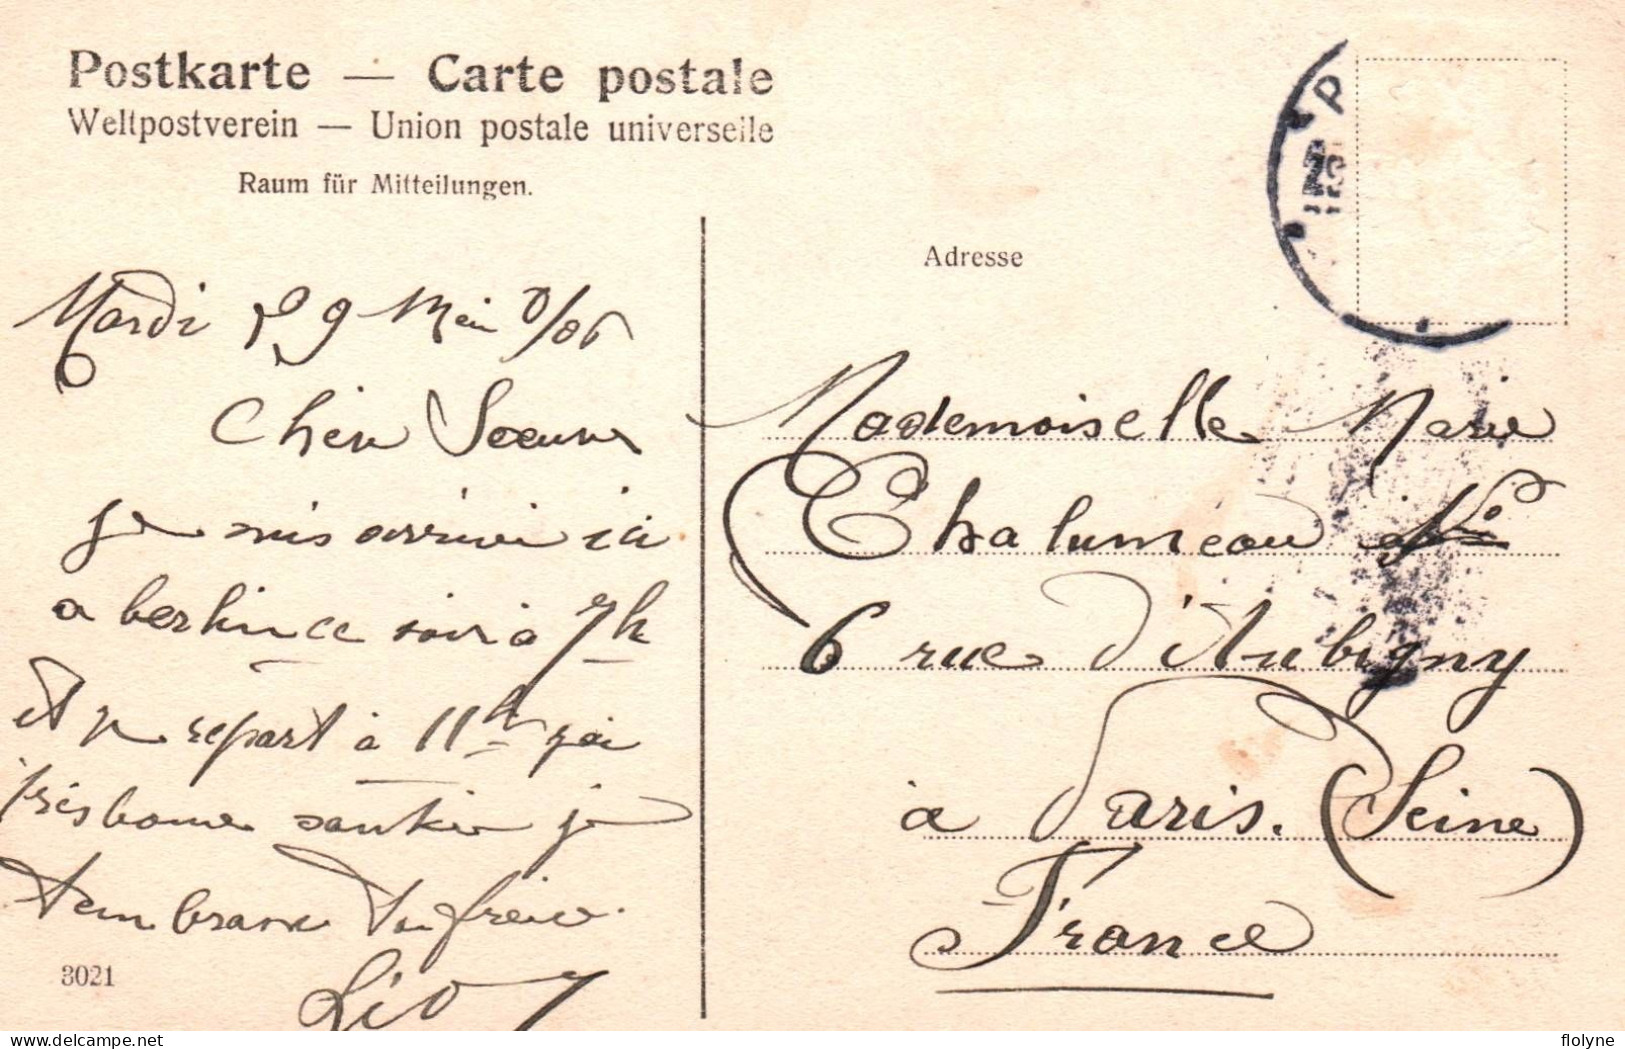 Postkarte — Carte postale
Weltpostverein — Union postale universelle
Raum für Mitteilungen.
Adresse
Mardi 9 Mai /06
Chère Soeur
je suis arrivé ici
a berlin ce soir à 7h
et je repart à 11h
très bonne santée je
t'embrasse Ton frère.
Léo
3021
Mademoiselle Marie
Chalumeau No
6 rue d'Aubigny
à Paris. (Seine)
France
delcampe.net
flolyne